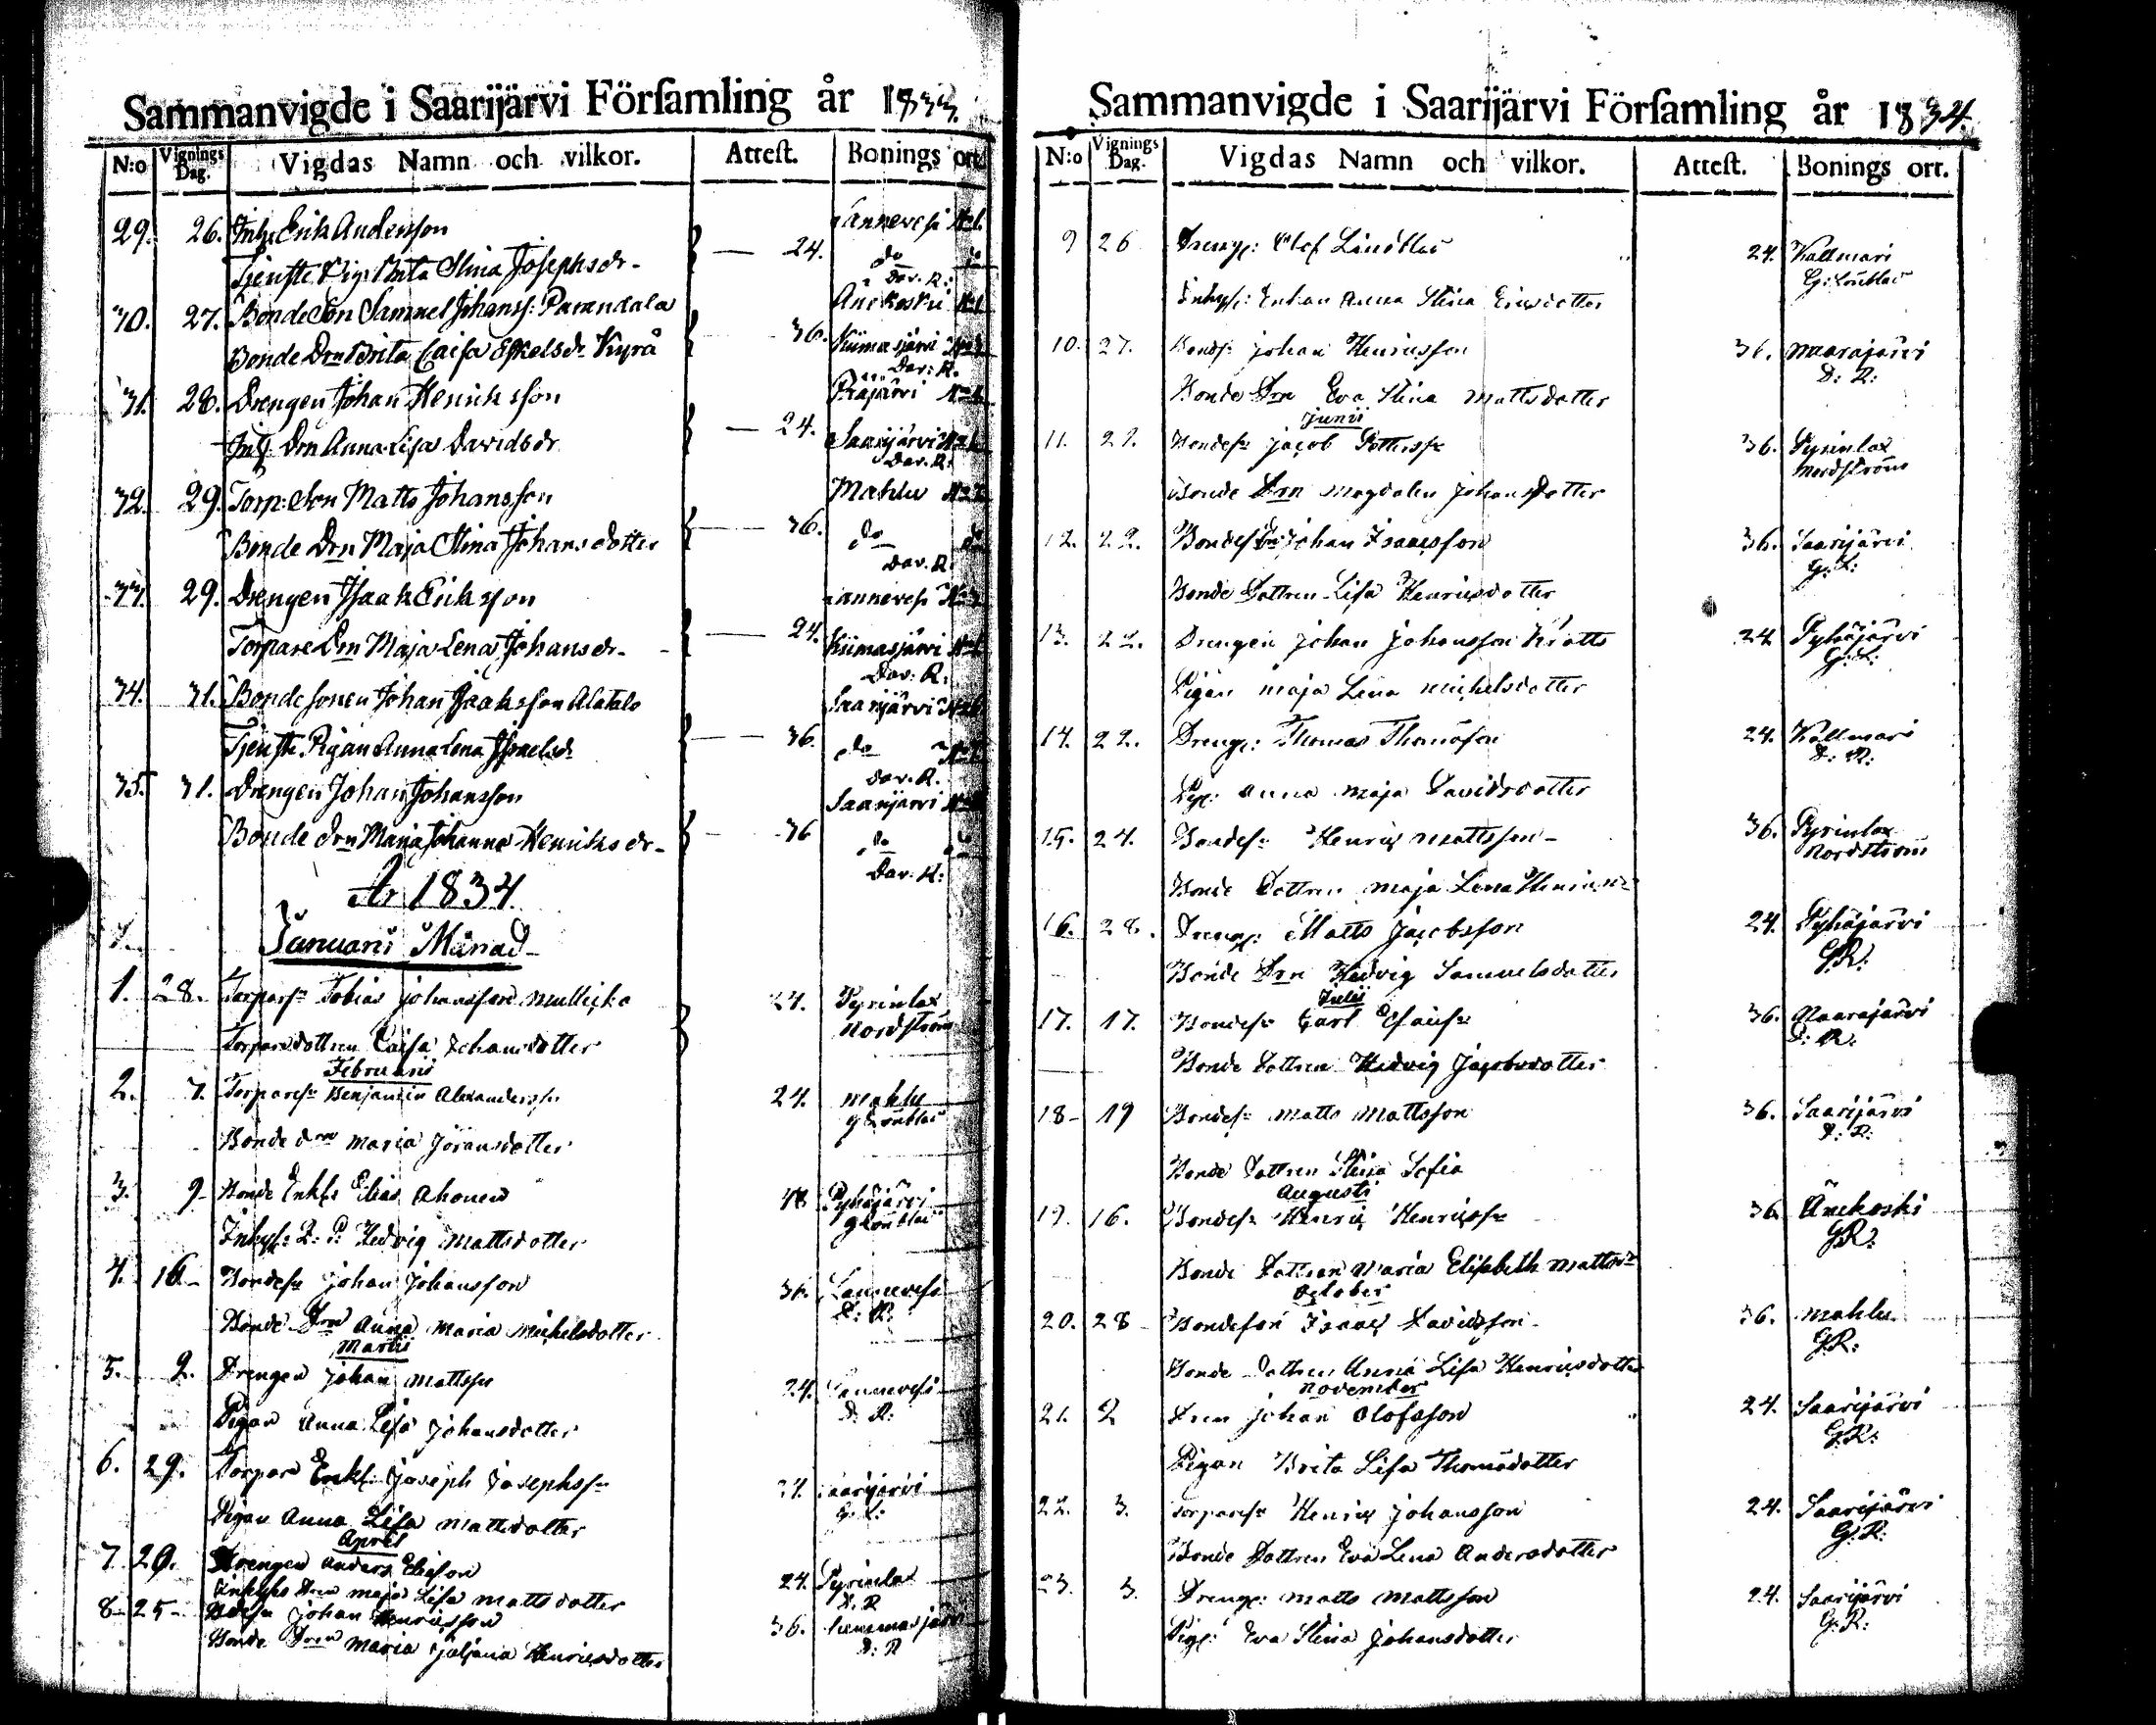 Sammanvigde i Saarijärvi Förſamling år 1833.
N:o Vignings Dag. Vigdas Namn och vilkor. Atteſt. Bonings ort.
29. 26. Inh: Erik Andersson Lannevesi
Tjenste Pig: Brita Stina Josephsdr. 24. do
Dav. R:
30. 27. Bonde Son Samuel Johanss: Parandala Änekoski
Bonde Drn Brita Caisa Eskelsdr Kyrö 36. Kiimasjärvi
Dav: R.
31. 28. Drengen Johan Henriksson Pääjärvi
Drn Anna Lisa Davidsdr 24. Saarijärvi
Dav. R:
32. 29. Torp: Son Matts Johansson Mahlu
Bonde Drn Maja Stina Johansdotter 36. do do
Dav. R.
33. 29. Drengen Isaak Eriksson Lannevesi
Torpare Drn Maja Lena Johansdr. 24. Kiimasjärvi
Dav: R.
34. 31. Bonde Sonen Johan Isaaksson Alatalo Saarijärvi
Tjenste Pigan Anna Lena Israelsdr 36. do
Dav. R.
35. 31. Drengen Johan Johansson Saarijärvi
Bonde Drn Maria Johanna Henriksdr. 36 do
Dav. R:
År 1834.
Januarii Månad
1. 28. Torpars: Tobias Johansson Mullikka 24. Pyrinlax
Nordström
Torparedottren Caisa Johansdotter
Februarii
2. 7. Torpares: Benjamin Alexanderss: 24. Mahlu
G Lönblad
Bonde drn Maria Jöransdotter
3. 9. Bonde Enkl: Elias Ahonen 48 Pyhäjärvi
G Lönblad
Inhys: Hedvig Mattsdotter
4. 16. Bondes: Johan Johansson 36. Lannevesi
D: R:
Bonde Drn Anna Maria Michelsdotter
Martii
5. 2. Drengen Johan Mattss: 24. Lannevesi
D: R:
Pigan Anna Lisa Johansdotter
6. 29. Torpare Enkl: Joseph Josephss: 24. Saarijärvi
G. L:
Pigan Anna Lisa Mattsdotter
April
7. 20. Drengen Anders Elieson 24. Pyrinlax
Inhyses Drn Maja Lisa Mattsdotter D. R
8. 25. Johan Henricsson 36. Kiimasjärvi
Bonde Drn Maria Juliana Henricsdotter D: R
Sammanvigde i Saarijärvi Förſamling år 1834.
N:o Vignings Dag. Vigdas Namn och vilkor. Atteſt. Bonings ort.
9 26 Dreng: Olof Lindblad 24. Kallmari
G: Lönblad
Inhys: Enkan Anna Stina Ericsdotter
10. 27. Bonds: Johan Henricsson 36. Maarajärvi
D: R:
Bonde Drn Eva Stina Mattsdotter
Junii
11. 22. Bondes: Jacob Petterss: 36. Pyrinlax
Nordström
Bonde Drn Magdalen Johansdotter
12. 22. Bondeson Johan Isaacsson 36. Saarijärvi
G: L:
Bonde Dottren Lisa Henricsdotter
13. 22. Drengen Johan Johansson Krotts 24 Pyhäjärvi
G: L:
Pigan Maja Lena Michelsdotter
14. 22. Dreng: Thomas Thomason 24. Kallmari
D: R:
Pig: Anna Maja Davidsdotter
15. 24. Bondes: Henric Mattsson 36. Pyrinlax
Nordström
Bonde Dottren Maja Lena
16. 28. Dreng: Matts Jacobsson 24. Pyhäjärvi
G.R:
Bonde Drn Hedvig Samuelsdotter
Julii
17. 17. Bondes: Carl Esaiss: 36. Maarajärvi
D: R:
Bonde Dottren Hedvig Jacobsdotter
18 19 Bondes: Matts Mattsson 36. Saarijärvi
D: R:
Bonde Dottren Stina Sofia
Augusti
19. 16. Bondes: Henric Henricss: 36 Änekoski
G.R:
Bonde Dottren Maria Elisabeth Mattsdr
October
20. 28 Bondeson Isaac Davidsson 36. Mahlu
G.R:
Bonde Dottren Anna Lisa Henricsdotter
November
21. 2 Dren Johan Olofsson 24. Saarijärvi
G.R:
Pigan Brita Lisa Thomasdotter
22. 3. Torpares: Henric Johansson 24. Saarijärvi
G: R:
Bonde Dottren Eva Lena Andersdotter
23. 3. Dreng: Matts Mattsson 24. Saarijärvi
G: R:
Pig: Eva Stina Johansdotter